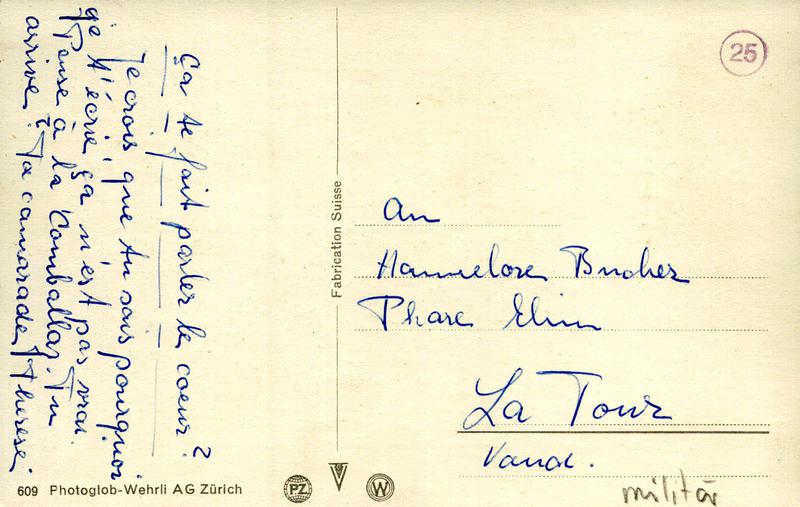 Ça te fait parler le coeur?
Je crois que tu sais pourquoi
je t'écris, ça n'est pas vrai.
Pense à la Comballaz. Tu
arrives? Ta camarade Thérèse
Fabrication Suisse
25
An
Hannelore Bucher
Phare Elim
La Tour
Vaud.
militär
609 Photoglob-Wehrli AG Zürich
PZ
W